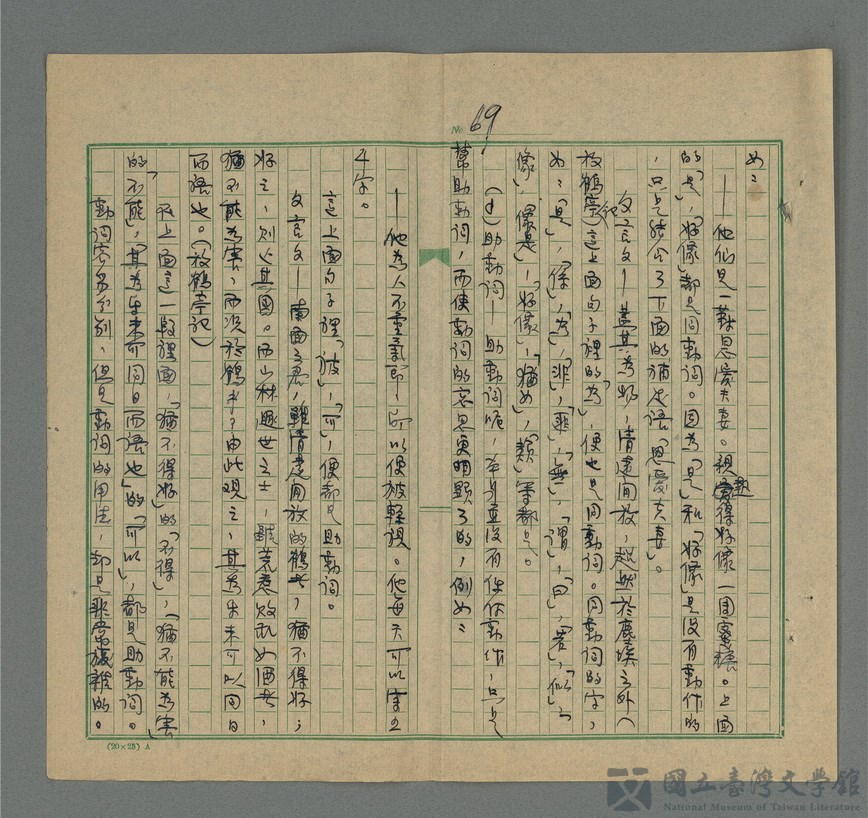 No. 69
如：
—他仙是一對恩愛夫妻。親熱得好像一團蜜糖。上面
的「是」，「好像」都是同動詞。因為「是」和「好像」是沒有動作的
，只是結合了下面的補足語「恩愛夫妻」。
文言文—蓋其為物，清遠閒放，超然於塵埃之外（
放鶴亭記）這上面句子裡的「為」，便也是同動詞。同動詞的字，
如：「是」，「係」，「為」，「非」，「匪」，「無」，「謂」，「曰」，「若」，「似」，「
像」，「像是」，「好像」，「猶如」，「類」等都是。
（d）助動詞—助動詞呢，本身並沒有什你動作，只是
幫助動詞，而使動詞的意思更明顯了的，例如：
—他為人不重氣節—所以便被輕視。他每天可以寫五
千字。
這上面句子裡「被」，「可」，便都是助動詞。
文言文—南面之君，雖清遠閒放的鶴者，猶不得好；
好之，則亡其國。而山林遯世之士，雖荒惑敗亂如酒者，
猶不能為害，而況於鶴乎？由此觀之，其為樂未可以同日
而語也。（放鶴亭記）
在上面這一段裡面，「猶不得好」的「不得」，「猶不能為害」
的「不能」，「其為樂未可同日而語也」的「可以」，都是助動詞。
動詞
分別，但是動詞的用法，却是非常複雜的。
(20×25) A
國立臺灣文學館
National Museum of Taiwan Literature